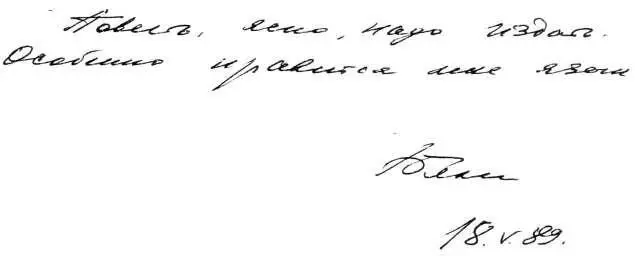 Повесть, ясно, надо издать.
Особенно нравится мне язык
18.V.89.